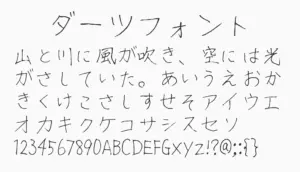 ダーツフォント
山と川に風が吹き、空には光
がさしていた。あいうえおか
きくけこさしすせそアイウエ
オカキクケコサシスセソ
1234567890ABCDEFGxyz!?@;:{}